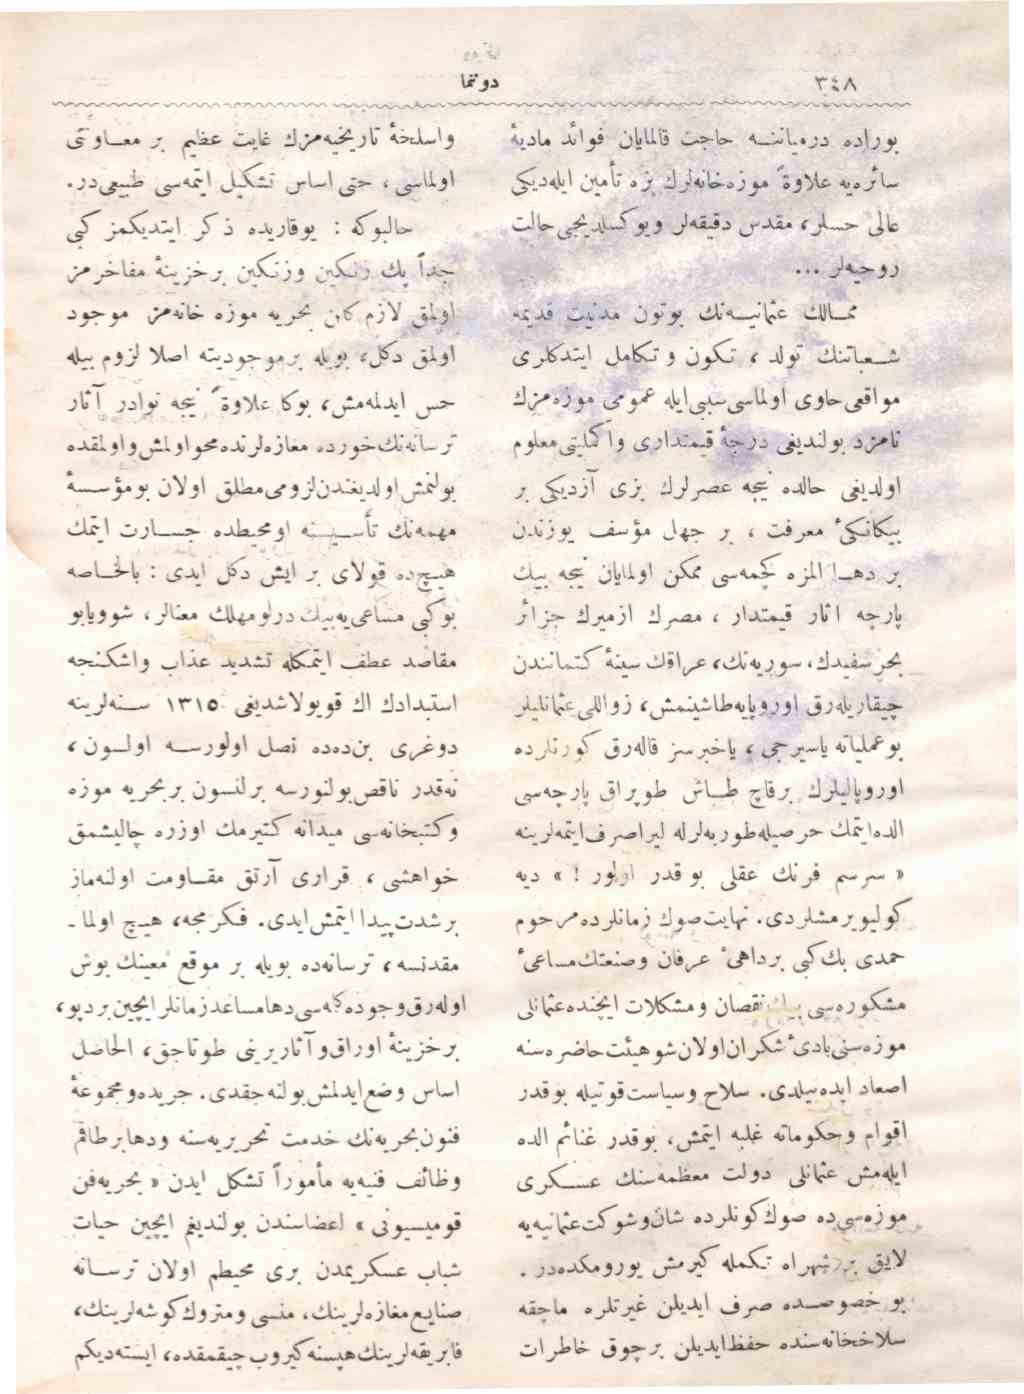 ٣٤٨
دوننما
بوراده درمیاننـه حاجت قالمایان فوائد مادیۀ
سائره‌یه علاوةً موزه‌خانه‌لرك بزه تأمین ایله‌دیکی
عالی حسلر، مقدس دقیقه‌لر ویوکسلدیجی حالت
روحیه‌لر ...
ممـالك عثمانیـه‌نك بوتون مدنیت قدیمه
شـعباتنك تولد ، تـکون و تـکامل ایتدکلری
مواقعی حاوی اولماسی سببی‌ایله عمومی موزه‌مزك
نامزد بولندیغی درجۀ قیمتداری واکملیتی معلوم
اولدیغی حالده نیجه عصرلرك بزی آزدیکی بر
بیکانکیٔ معرفت ، بر جهل مؤسف یوزندن
بر دهـا المزه کچمه‌سی ممکن اولمایان نیجه بیك
پارچه اثار قیمتدار ، مصرك ازمیرك جزائر
بحر سفیدك، سوریه‌نك، عراقك سینۀ کتمانندن
چیقاریله‌رق اوروپایه‌طاشینمش، زواللی عثمانلیلر
بوعملیاته یاسیرجی ، یاخبرسز قاله‌رق کورنلرده
اوروپالیلرك برقاچ طـاش طوپراق پارچه‌سی
الده‌ایتمك حرصیله‌طوربه‌لرله لیراصرف‌ایتمه‌لرینه
« سرسم فرنك عقلی بوقدر اولور ! » دیه
کولیویرمشلردی. نهایت‌صوك زمانلرده‌مرحوم
حمدی بك‌کبی برداهیٔ عرفان وصنعتك‌مساعیٔ
مشکوره‌سی بیك‌نقصان ومشکلات ایچنده‌عثمانلی
موزه‌سنی‌بادیٔ شکران‌اولان‌شوهیئت‌حاضره‌سنه
اصعاد ایده‌بیلدی. سلاح وسیاست‌قوتیله بوقدر
اقوام وحکوماته غلبه ایتمش، بوقدر غنائم الده
ایله‌مش عثمانلی دولت معظمه‌سنك عسـکری
موزه‌سی‌ده صوك‌کونلرده شان‌وشوکت‌عثمانیه‌یه
لایق بر شهراه تـکمله کیرمش یورومکده‌در.
بو خصوصـده صرف ایدیلن غیرتلره ماچقه
سلاخخانه‌سنده حفظ‌ایدیلن برچوق خاطرات
واسلحۀ تاریخیه‌مزك غایت عظیم بر معـاونتی
اولماسی، حتی اساس تشکیل ایتمه‌سی طبیعی‌در.
حالبوکه : یوقاریده ذکر ایتدیکمز کبی
جداً پك زنـکین وزنـکین برخزینۀ مفاخرمز
اولمق لازم کلن بحریه موزه خانه‌مز موجود
اولمق دکل، بویله برموجودیته اصلا لزوم بیله
حس ایدلمه‌مش، بوکا علاوةً نیجه نوادر آثار
ترسانه‌نك‌خورده مغازه‌لرنده‌محواولمش‌واولمقده
بولنمش‌اولدیغندن‌لزومی‌مطلق اولان بومؤسسۀ
مهمه‌نك تأسیسنه اومحیطده جسـارت ایتمك
هیـچ‌ده قولای بر ایش دکل ایدی : بالخـاصه
بوکبی مساعی‌یه‌بیك‌درلومهلك معنالر، شوویابو
مقاصد عطف ایتمکله تشدید عذاب واشکنجه
استبدادك اك قویولاشدیغی ١٣١٥ سـنه‌لرینه
دوغری بن‌ده‌ده نصل اولورسـه اولـون ،
نه‌قدر ناقص‌بولنورسه برلنسون بربحریه موزه
وکتبخانه‌سی میدانه کتیرمك اوزره چالیشمق
خواهشی ، قراری آرتق مقـاومت اولنه‌ماز
برشدت‌پیدا ایتمش‌ایدی. فکرمجه، هیـچ اولما ـ
مقدنسه، ترسانه‌ده بویله بر موقع معینك بوش
اوله‌رق‌وجوده‌کله‌سی‌دهامساعدزمانلر ایچین‌بردپو،
برخزینۀ اوراق‌وآثاریرینی طوتاجق، الحاصل
اساس وضع‌ایدلمش‌بولنه‌جقدی. جریده‌ومجموعۀ
فنون‌بحریه‌نك خدمت تحریریه‌سنه ودهابرطاقم
وظائف فنیه‌یه مأموراً تشکل ایدن « بحریه‌فن
قومیسیونی » اعضاسندن بولندیغم ایچین حیات
شباب عسکریمدن بری محیطم اولان ترسـانه
صنایع‌مغازه‌لرینك، منسی ومتروك‌کوشه‌لرینك،
فابریقه‌لرینك‌هپسنه‌کیروب‌چیقمقده، ایسته‌دیکم